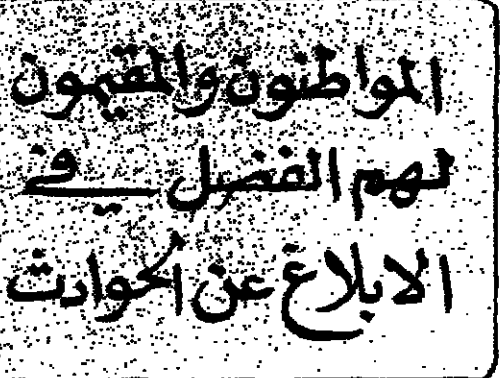 المواطنون والمقيمون
لهم الفضل في
الابلاغ عن الحوادث